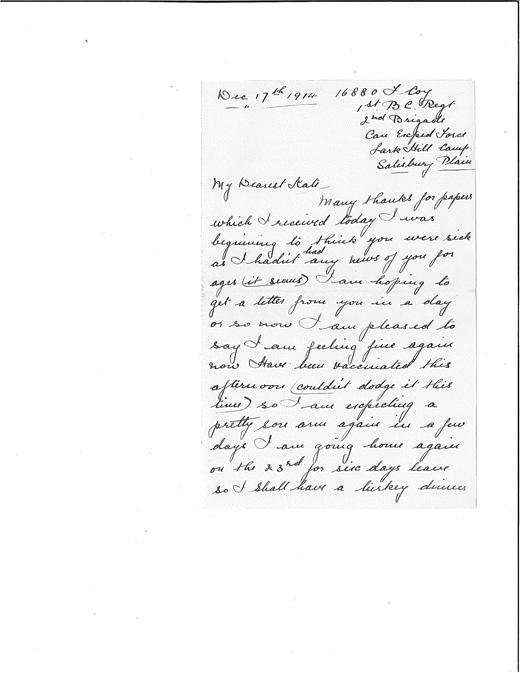 Dec 17th 1914 16880 F Coy
1st B.C. Regt
2nd Brigade
Can Exped Force
Lark Hill Camp
Salisbury Plain
My Dearest Kate
Many thanks for papers
which I received today I was
beginning to think you were sick
as I hadn't had any news of you for
ages (it seems) I am hoping to
get a letter from you in a day
or so now I am pleased to
say I am feeling fine again
now Have been vaccinated this
afternoon (couldn't dodge it this
time) so I am expecting a
pretty sore arm again in a few
days I am going home again
on the 23rd for six days leave
so I shall have a turkey dinner